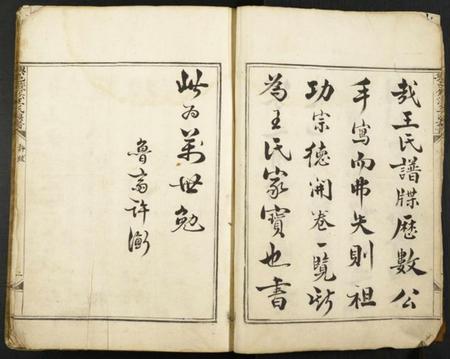 哉王氏譜牒歷數公
手寫而弗失則祖
功宗德開卷一覽斯
為王氏家寶也書
此為萬世勉
魯齋許衡